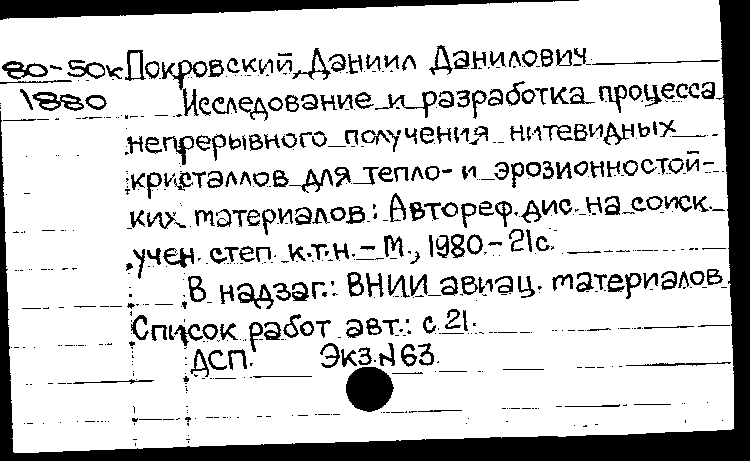 80-50к Покровский, Даниил Данилович
1880 Исследование и разработка процесса
непрерывного получения нитевидных
кристаллов для тепло- и эрозионностой-
ких материалов: Автореф. дис. на соиск.
учен. степ. к.т.н. - М., 1980. - 21с.
В надзаг.: ВНИИ авиац. материалов.
Список работ авт.: с. 21.
ДСП. Экз. N 63.